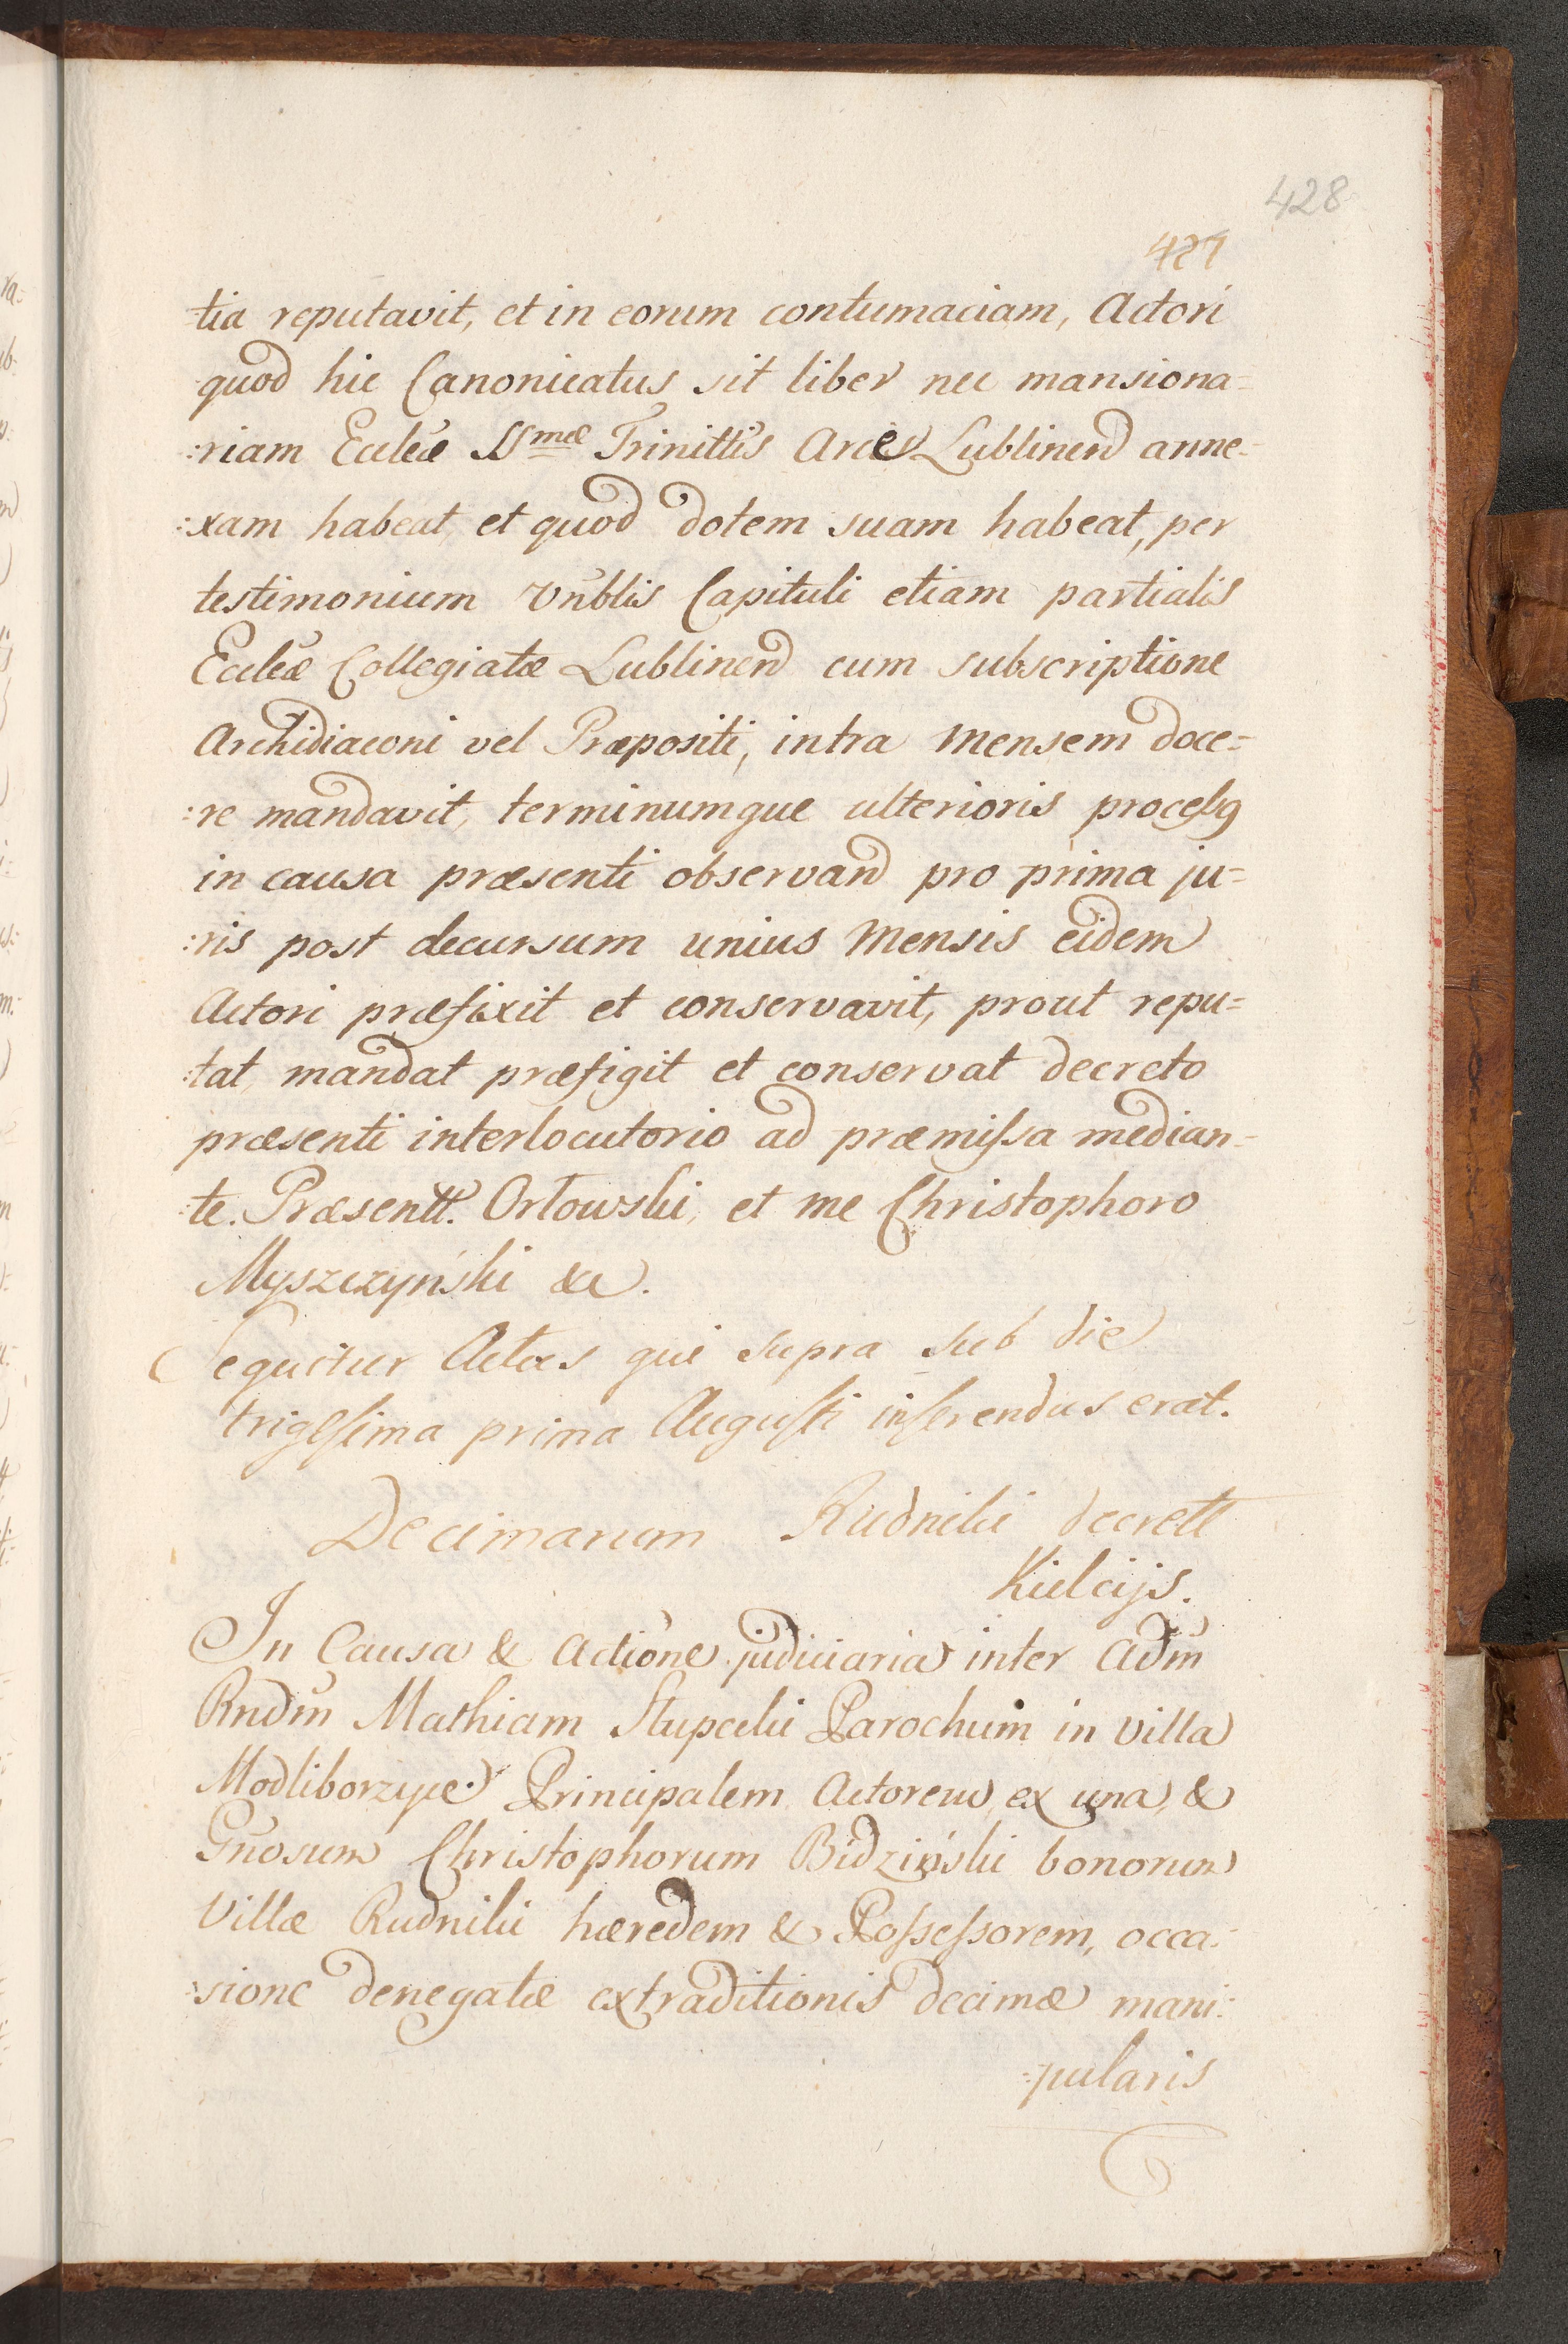 428
427
-tia reputavit, et in eorum contumaciam, Actori
quod hic Canonicatus sit liber nec mansiona=
:riam Eccleæ SSmæ Trinittis Arcis Lublinen anne-
:xam habeat et quod dotem suam habeat, per
testimonium Vnblis Capituli etiam partialis
Eccleæ Collegiatæ Lublinen cum subscriptione
Archidiaconi vel Præpositi, intra Mensem doce=
:re mandavit, terminumque ulterioris processus
in causa præsenti observand pro prima ju=
:ris post decursum unius Mensis eidem
Actori præfixit et conservavit, prout repu=
:tat, mandat præfigit et conservat decreto
præsenti interlocutorio ad præmissa median-
:te. Præsentt. Orłowski, et me Christophoro
Myszczyński &c.
Sequitur Actus qui supra sub die
trigesima prima Augusti inserendus erat.
Decimarum Rudniki decrett
Kielcijs.
In Causa & Actione judiciaria inter Adm
Rndm Mathiam Słupecki Parochum in Villa
Modliborzyce Principalem Actorem ex una, &
Gnosum Christophorum Bidziński bonorum
Villæ Rudniki hæredem & Possessorem, occa-
:sione denegatæ extraditionis decimæ mani:
:pularis